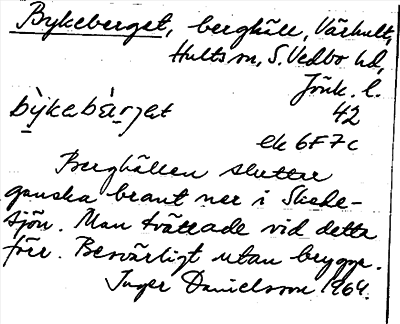 Bykeberget, berghäll, Värhult,
Hults sn, S. Vedbo hd,
Jönk. l.
bỳkebær̥jet 42
ek 6F7c
Berghällen sluttar
ganska brant ner i Skede-
sjön. Man tvättade vid detta
förr. Besvärligt utan brygga.
Inger Danielsson 1964.